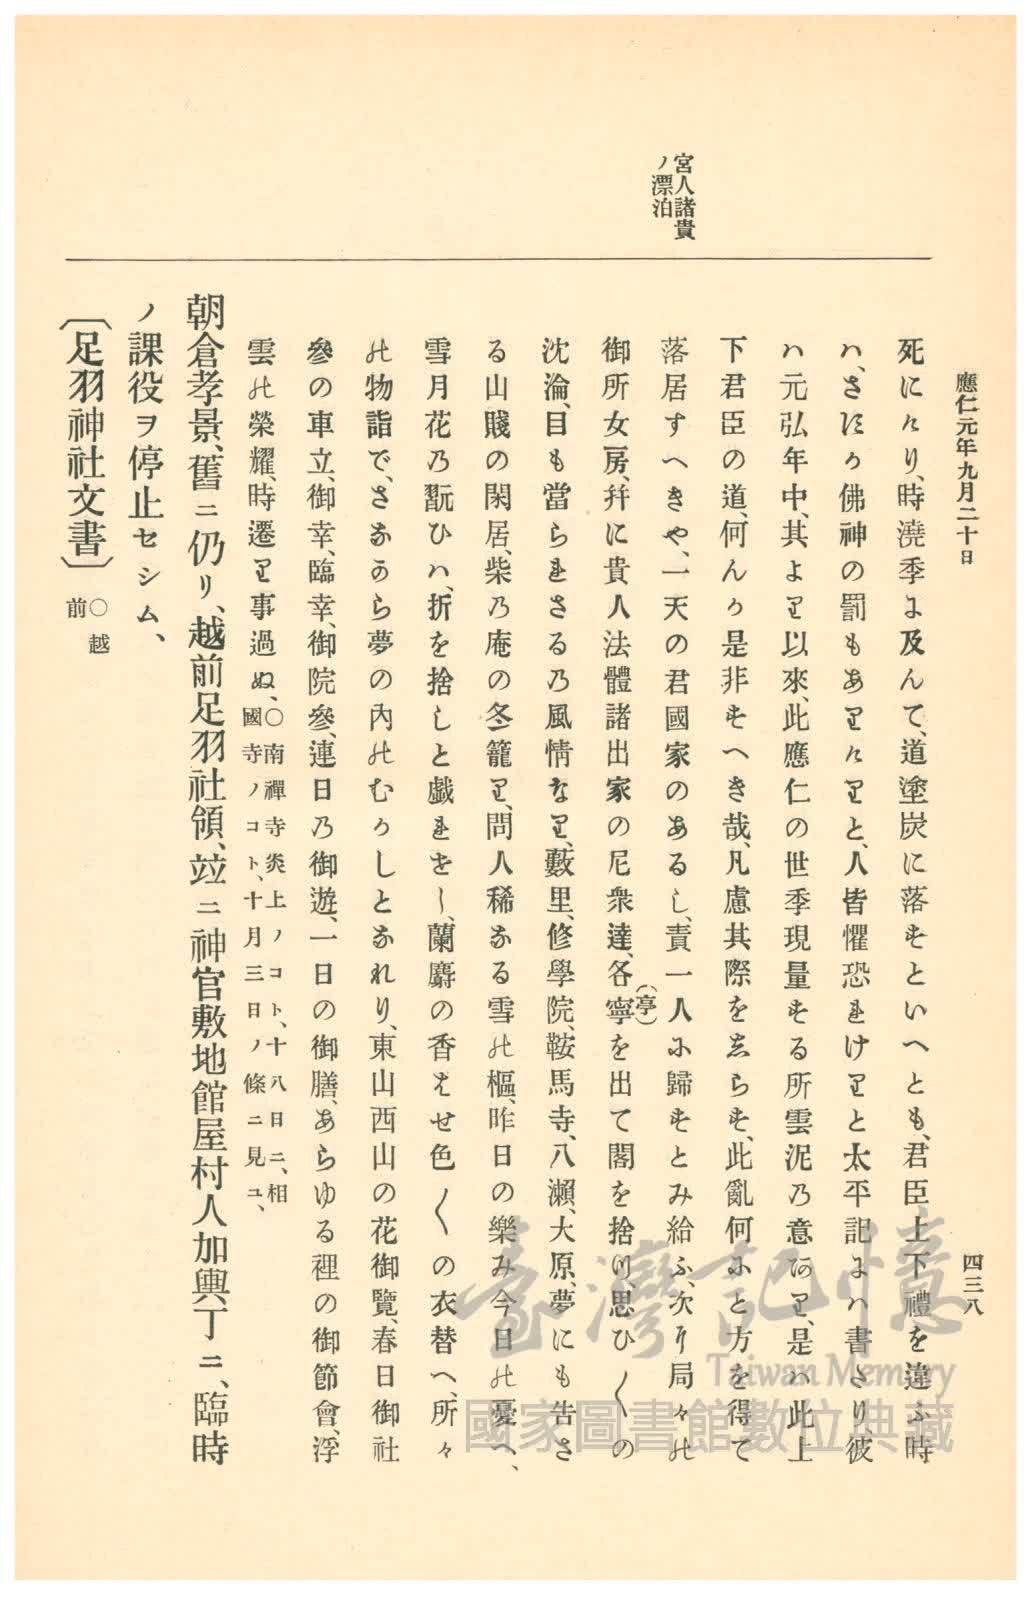 應仁元年九月二十日
四三八
宮人諸貴
ノ漂泊
死にけり、時澆季に及んて、道塗炭に落すといへとも、君臣上下禮を違ふ時
ハ、さすか佛神の罰もありけりと、人皆懼恐れけりと太平記にハ書さり、彼
ハ元弘年中、其より以來、此應仁の世季現量する所雲泥乃意あり、是ハ此上
下君臣の道、何んか是非すへき哉、凡慮其際をしらす、此亂何にと方を得て
落居すへきや、一天の君國家のあるし、責一人に歸すとみ給ふ、次り局々の
御所女房、幷に貴人法體諸出家の尼衆達、各寧(亭)を出て閣を捨り、思ひ〱の
沈淪、目も當られさる乃風情なり、藪里、修學院、鞍馬寺、八瀨、大原、夢にも告さ
る山賤の閑居、柴乃庵の冬籠り、問人稀なる雪の樞、昨日の樂み今日の憂へ、
雪月花乃翫ひハ、折を捨しと戲れをし、蘭麝の香はせ色〱の衣替へ、所々
の物詣で、さなから夢の內のむかしとなれり、東山西山の花御覽、春日御社
參の車立、御幸、臨幸、御院參、連日乃御遊、一日の御膳、あらゆる裡の御節會、浮
雲の榮耀、時遷り事過ぬ、○南禪寺炎上ノコト、十八日ニ、相
國寺ノコト、十月三日ノ條ニ見ユ、
朝倉孝景、舊ニ仍リ、越前足羽社領、竝ニ神官敷地館屋村人加輿丁ニ、臨時
ノ課役ヲ停止セシム、
〔足羽神社文書〕○越
前
臺灣記憶
Taiwan Memory
國家圖書館數位典藏